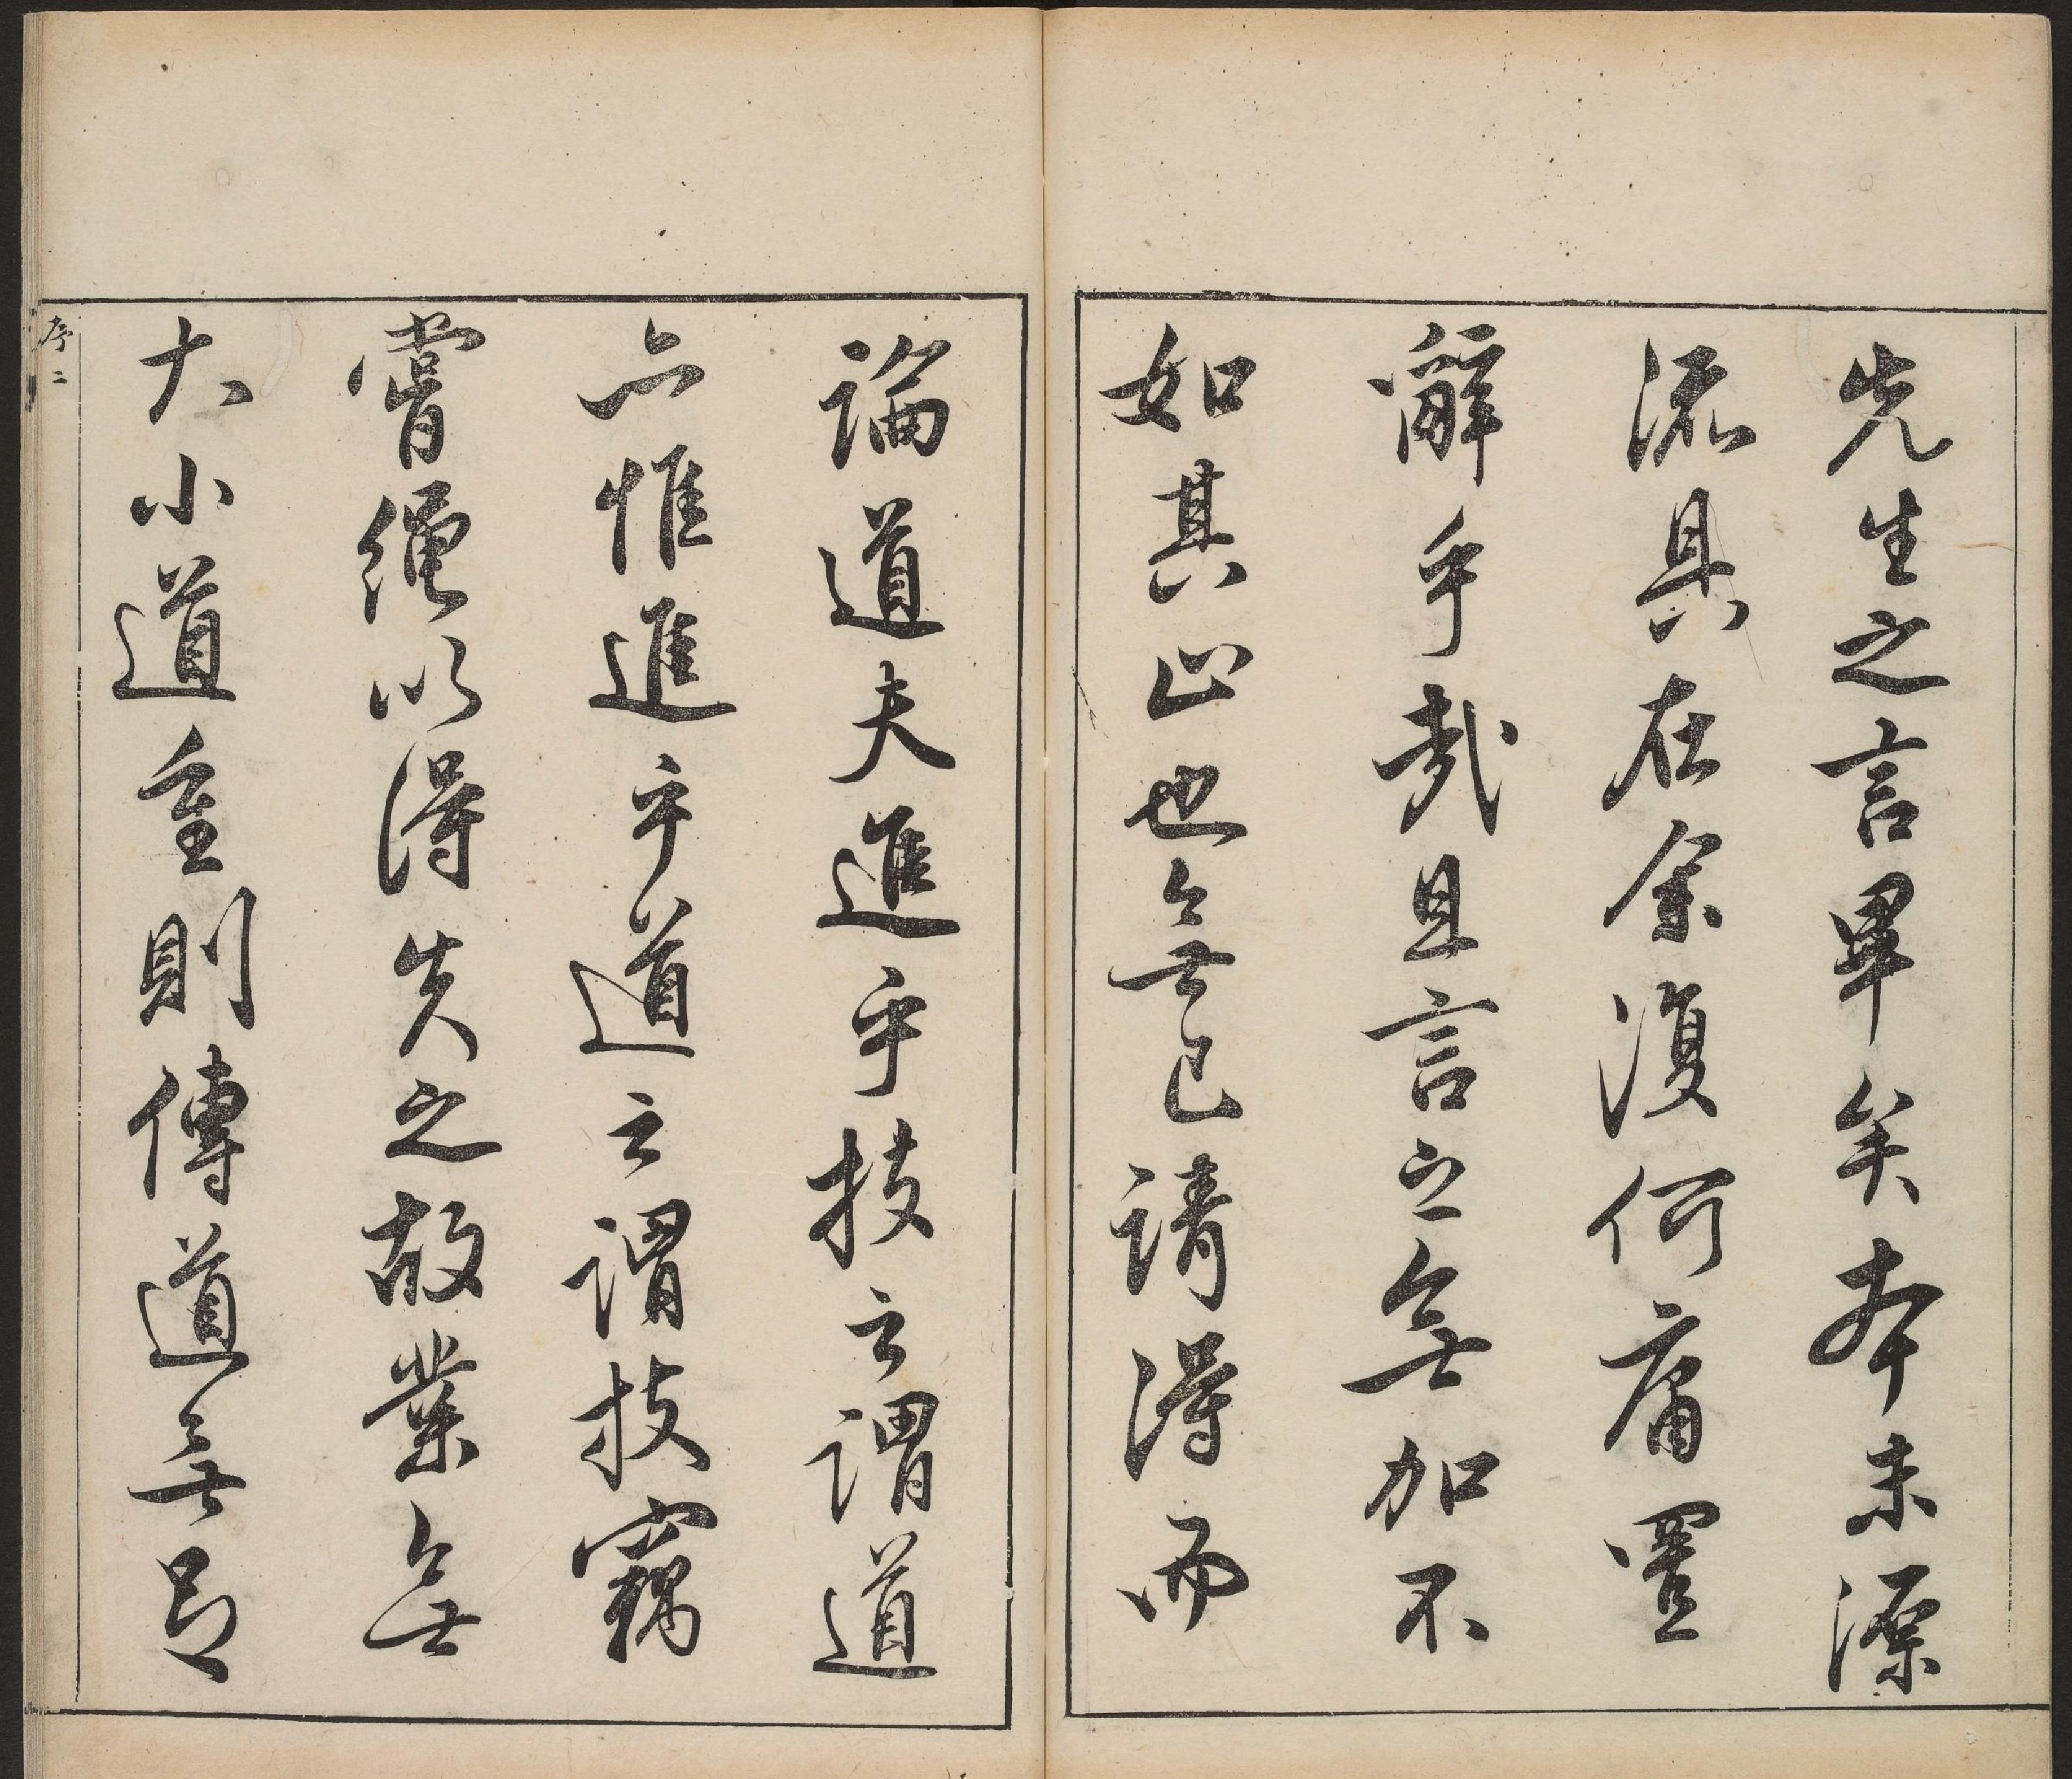 先生之言畢矣本末源
流具在余復何庸置
辭乎哉且言之無加不
如其止也無已請得而
論道夫進乎技之謂道
亦惟進乎道之謂技竊
嘗繩以得失之故業無
大小道重則傳道無門
序二